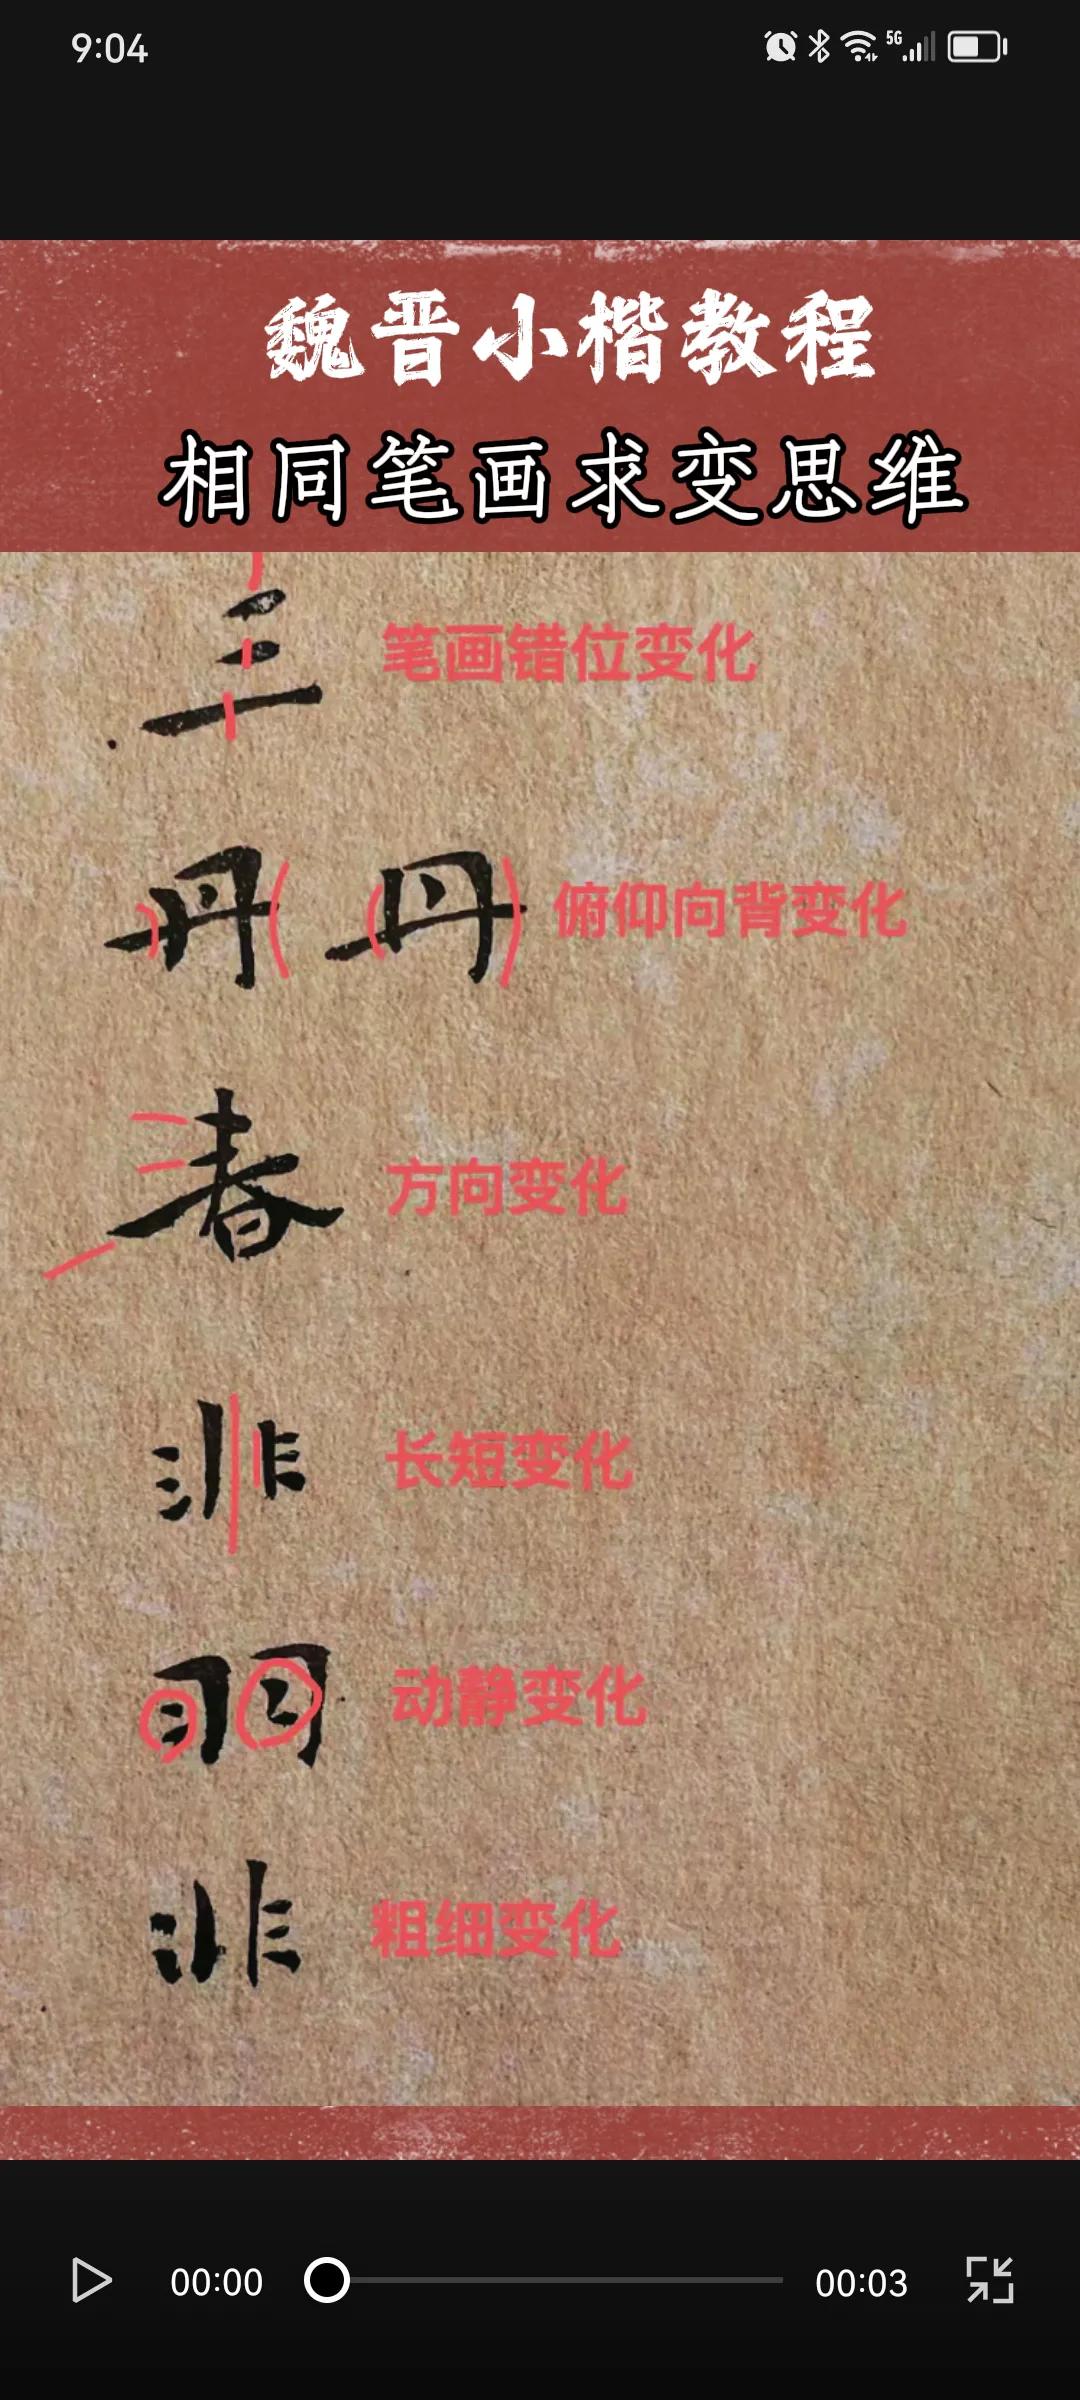 9:04
5G
魏晋小楷教程
相同笔画求变思维
三 笔画错位变化
丹 丹 俯仰向背变化
春 方向变化
非 长短变化
羽 动静变化
非 粗细变化
00:00 00:03